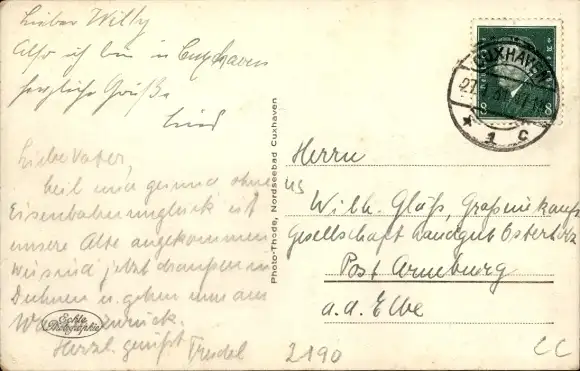 Lieber Willy
Also ich bin in Cuxhaven
herzliche Grüße
Lieber Vater,
heil und gesund ohne
Eisenbahnunglück ist
unsere Alte angekommen
Wir sind jetzt draußen in
Duhnen u. gehen nun am
zurück.
Herzl. gegrüßt Trudel
Echte
Photographie
Photo-Thode, Nordseebad Cuxhaven
CUXHAVEN
* 1 c
8 8
Herrn
Wilh. Gläß, Großeinkaufs
Gesellschaft Landgut Osterholz
Post Arneburg
a.d. Elbe
2190
CC